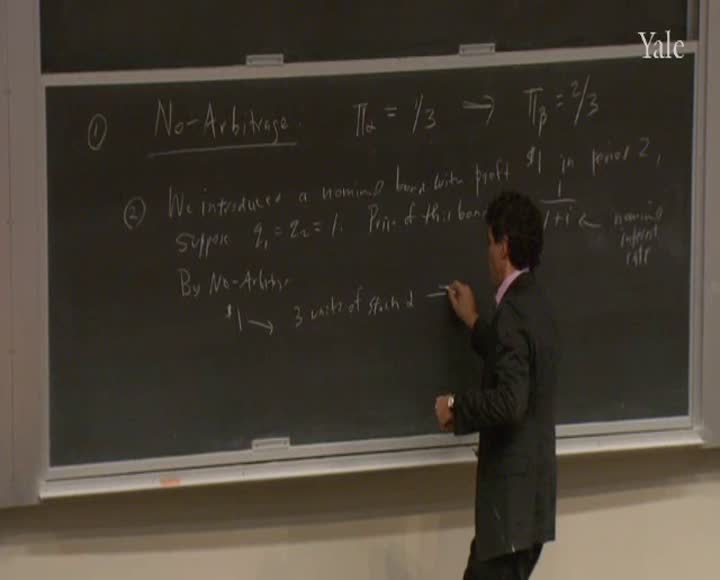 Yale
① No-Arbitrage. Πα = 1/3 → Πβ = 2/3
② We introduced a nominal bond with profit $1 in period 2,
suppose q1 = q2 = 1. Price of this bond 1/1+i ← nominal interest rate
By No-Arbitr
$1 → 3 units of stock α